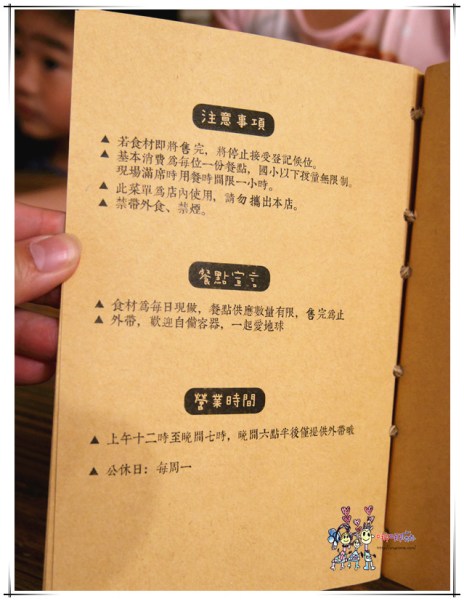 注意事項
▲ 若食材即將售完，將停止接受登記候位。
▲ 基本消費為每位一份餐點，國小以下孩童無限制。
現場滿席時用餐時間限一小時。
▲ 此菜單為店內使用，請勿攜出本店。
▲ 禁帶外食、禁煙。
餐點宣言
▲ 食材為每日現做，餐點供應數量有限，售完為止
▲ 外帶，歡迎自備容器，一起愛地球
營業時間
▲ 上午十二時至晚間七時，晚間六點半後僅提供外帶哦
▲ 公休日：每周一